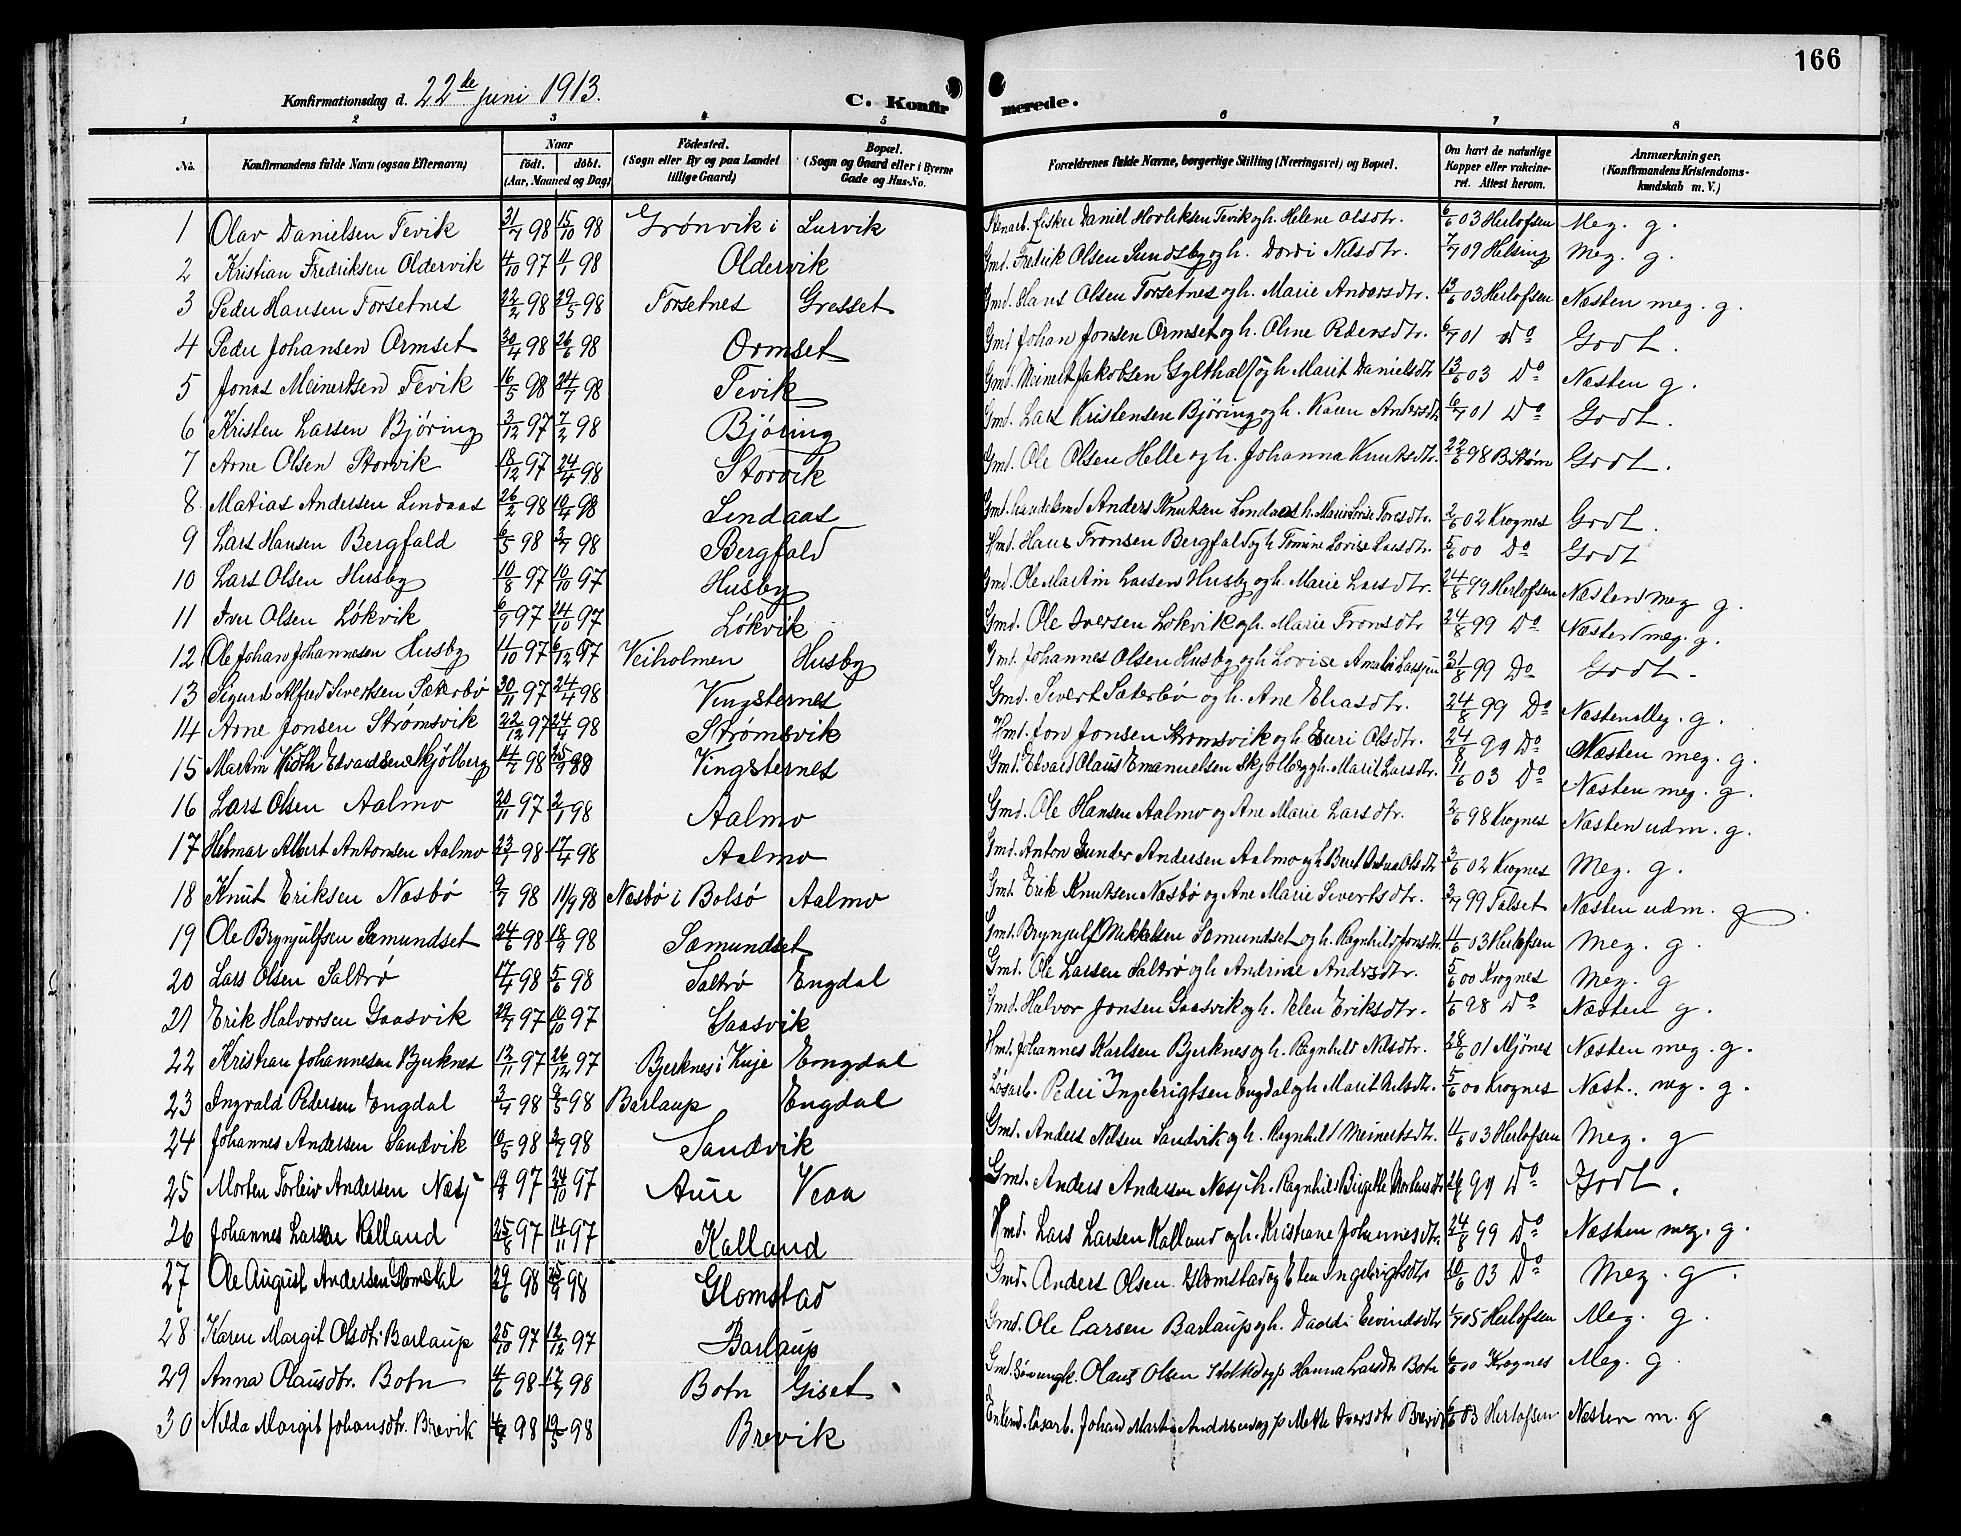 166
Konfirmationsdag d. 22de juni 1913.
C. Konfirmerede.
1 2 3 4 5 6 7 8
No. Konfirmandens fulde Navn (ogsaa Efternavn) Naar født. døbt. (Aar, Maaned og Dag) Fødested. (Sogn eller By og paa Landet tillige Gaard) Bopæl. (Sogn og Gaard eller i Byerne Gade og Hus-No. Forældrenes fulde Navne, borgerlige Stilling (Næringsvei) og Bopæl. Om havt de naturlige Kopper eller vakcineret. Attest herom. Anmærkninger. (Konfirmandens Kristendomskundskab m. V.)
1 Olav Danielsen Tevik 31/7 98 15/10 98 Grønvik i Lurvik Stenarb. fisker Daniel Tevik og h. Helene Olsdtr. 6/6 03 Herlofsen Meg. g.
2 Kristian Fredriksen Oldervik 4/10 97 11/1 98 Oldervik Gmd. Fredrik Olsen Sundsby og h. Dordi Nilsdtr. 7/7 09 Helsing Meg. g.
3 Peder Hansen Forsetnes 22/2 98 29/5 98 Forsetnes Gresset Gmd. Hans Olsen Forsetnes og h. Marie Andersdtr. 13/6 03 Herlofsen Næsten meg. g.
4 Peder Johansen Ormset 30/4 98 26/6 98 Ormset Gmd Johan Jonsen Ormset og h. Oline Pedersdtr. 6/7 01 Do Godt.
5 Jonas Meinertsen Tevik 16/5 98 24/7 98 Tevik Gmd. Meinert Jakobsen Gylthal og h Marit Danielsdtr 13/6 03 Do Næsten g.
6 Kristen Larsen Bjøring 3/12 97 7/2 98 Bjøring Gmd. Lars Kristensen Bjøring og h. Karen Andersdtr 6/7 01 Do Godt.
7 Arne Olsen Storvik 18/12 97 24/4 98 Storvik Gmd. Ole Olsen Helle og h. Johanna Knutsdtr. 22/6 98 B. Strøm Godt.
8 Matias Andersen Lindaas 26/2 98 10/4 98 Lindaas Gmd. Anders Knutsen Lindaas h. Marie Lovise Toresdtr. 2/6 02 Krognes Godt.
9 Lars Hansen Bergfald 6/5 98 3/7 98 Bergfald Hmd. Hans Fronsen Bergfald og h Tomine Lovise Larsdtr. 5/6 00 Do Godt
10 Lars Olsen Husby 10/8 97 10/10 97 Husby Gmd. Ole Martin Larsen Husby og h. Marie Larsdtr. 24/8 99 Herlofsen Næsten meg g.
11 Iver Olsen Løkvik 6/9 97 24/10 97 Løkvik Gmd. Ole Iversen Løkvik og h. Marie Fronsdtr 24/8 99 Do Næsten meg. g.
12 Ole Johan Johannesen Husby 11/10 97 6/12 97 Veiholmen Husby Gmd. Johannes Olsen Husby og h Lovise Amalie Larsen 31/8 99 Do Godt.
13 Sigurd Alfred Sivertsen Sæterbø 30/11 97 24/4 98 Vingsternes Gmd. Sivert Sæterbø og h. Ane Eliasdtr. 24/8 99 Do Næsten Meg. g.
14 Arne Jonsen Strømsvik 22/12 97 24/4 98 Strømsvik Hmd. Jon Jonsen Strømsvik og h Guri Olsdtr. 24/8 99 Do Næsten meg. g.
15 Martin Edvardsen Skjølberg 14/7 98 98 Vingsternes Gmd. Edvard Olaus Emanuelsen Skjølberg og h. Marit Larsdtr. 11/6 03 Do Næsten meg. g.
16 Lars Olsen Aalmo 20/11 97 2/1 98 Aalmo Gmd. Ole Hansen Aalmo og Ane Marie Larsdtr. 2/6 98 Krognes Næsten udm. g.
17 Helmar Albert Antonsen Aalmo 23/1 98 17/4 98 Aalmo Gmd. Anton Gunder Andersen Aalmo og h Berit Olsdtr 3/6 02 Krognes Meg. g.
18 Knut Eriksen Næsbø 9/7 98 11/9 98 Næsbø i Bolsø Aalmo Gmd. Erik Knutsen Næsbø og Ane Marie Sivertsdtr. 3/7 99 Talset Næsten udm. g.
19 Ole Brynjulfsen Sæmundset 24/6 98 18/9 98 Sæmundset Gmd. Brynjulf Mikkelsen Sæmundset og h. Ragnhild Jonsdtr. 11/6 03 Herlofsen Meg. g.
20 Lars Olsen Saltrø 17/4 98 5/6 98 Saltrø Engdal Gmd. Ole Larsen Saltrø og h Andrine Andrsdtr. 5/6 00 Krognes Meg. g
21 Erik Halvorsen Gaasvik 29/7 97 10/10 97 Gaasvik Gmd. Halvor Jonsen Gaasvik og h. Elen Eriksdtr. 1/6 98 Do Næsten g.
22 Kristian Johannesen Bjerknes 12/11 97 26/12 97 Bjerknes i Tuje Engdal Hmd. Johannes Karlsen Bjerknes og h. Ragnhild Nilsdtr. 28/6 01 Mjønes Næsten meg. g.
23 Ingvald Pedersen Engdal 3/4 98 9/5 98 Barlaup Engdal Løsarb. Peder Ingebrigtsen Engdal og h Marit Nilsdtr. 5/6 00 Krognes Næst. meg. g.
24 Johannes Andersen Sandvik 10/5 98 3/7 98 Sandvik Gmd. Anders Nilsen Sandvik og h. Ragnhild Meinertsdtr. 11/6 03 Herlofsen Meg. g
25 Morten Torleiv Andersen Næsj 97 24/10 97 Aure Veaa Gmd. Anders Andersen Næsj h. Ragnhild Birgitte 99 Do Godt.
26 Johannes Larsen Kalland 25/8 97 14/11 97 Kalland Hmd. Lars Larsen Kalland og h. Kristiane Johannesdtr. 24/8 99 Do Næsten meg. g.
27 Ole August Andersen Glomstad 29/6 98 98 Glomstad Gmd. Anders Olsen Glomstad og Elen Ingebrigtsdtr 10/6 03 Do Meg. g.
28 Karen Margit Olsdtr. Barlaup 25/10 97 12/12 97 Barlaup Gmd. Ole Larsen Barlaup og h. Daddi Eivindsdtr 1/7 05 Herlofsen Meg. g.
29 Anna Olausdtr. Botn 4/6 98 17/7 98 Botn Giset Gmd. Sønungk. Olaus Olsen og p Hanna Larsdtr Botn 6/6 00 Krognes Meg. g.
30 Nilda Margit Johansdtr. Brevik 98 19/5 98 Brevik Enkemd. løsarb. Johan Martin Andersen og p Mette Iversdtr Brevik 6/6 03 Herlofsen Næsten m. g